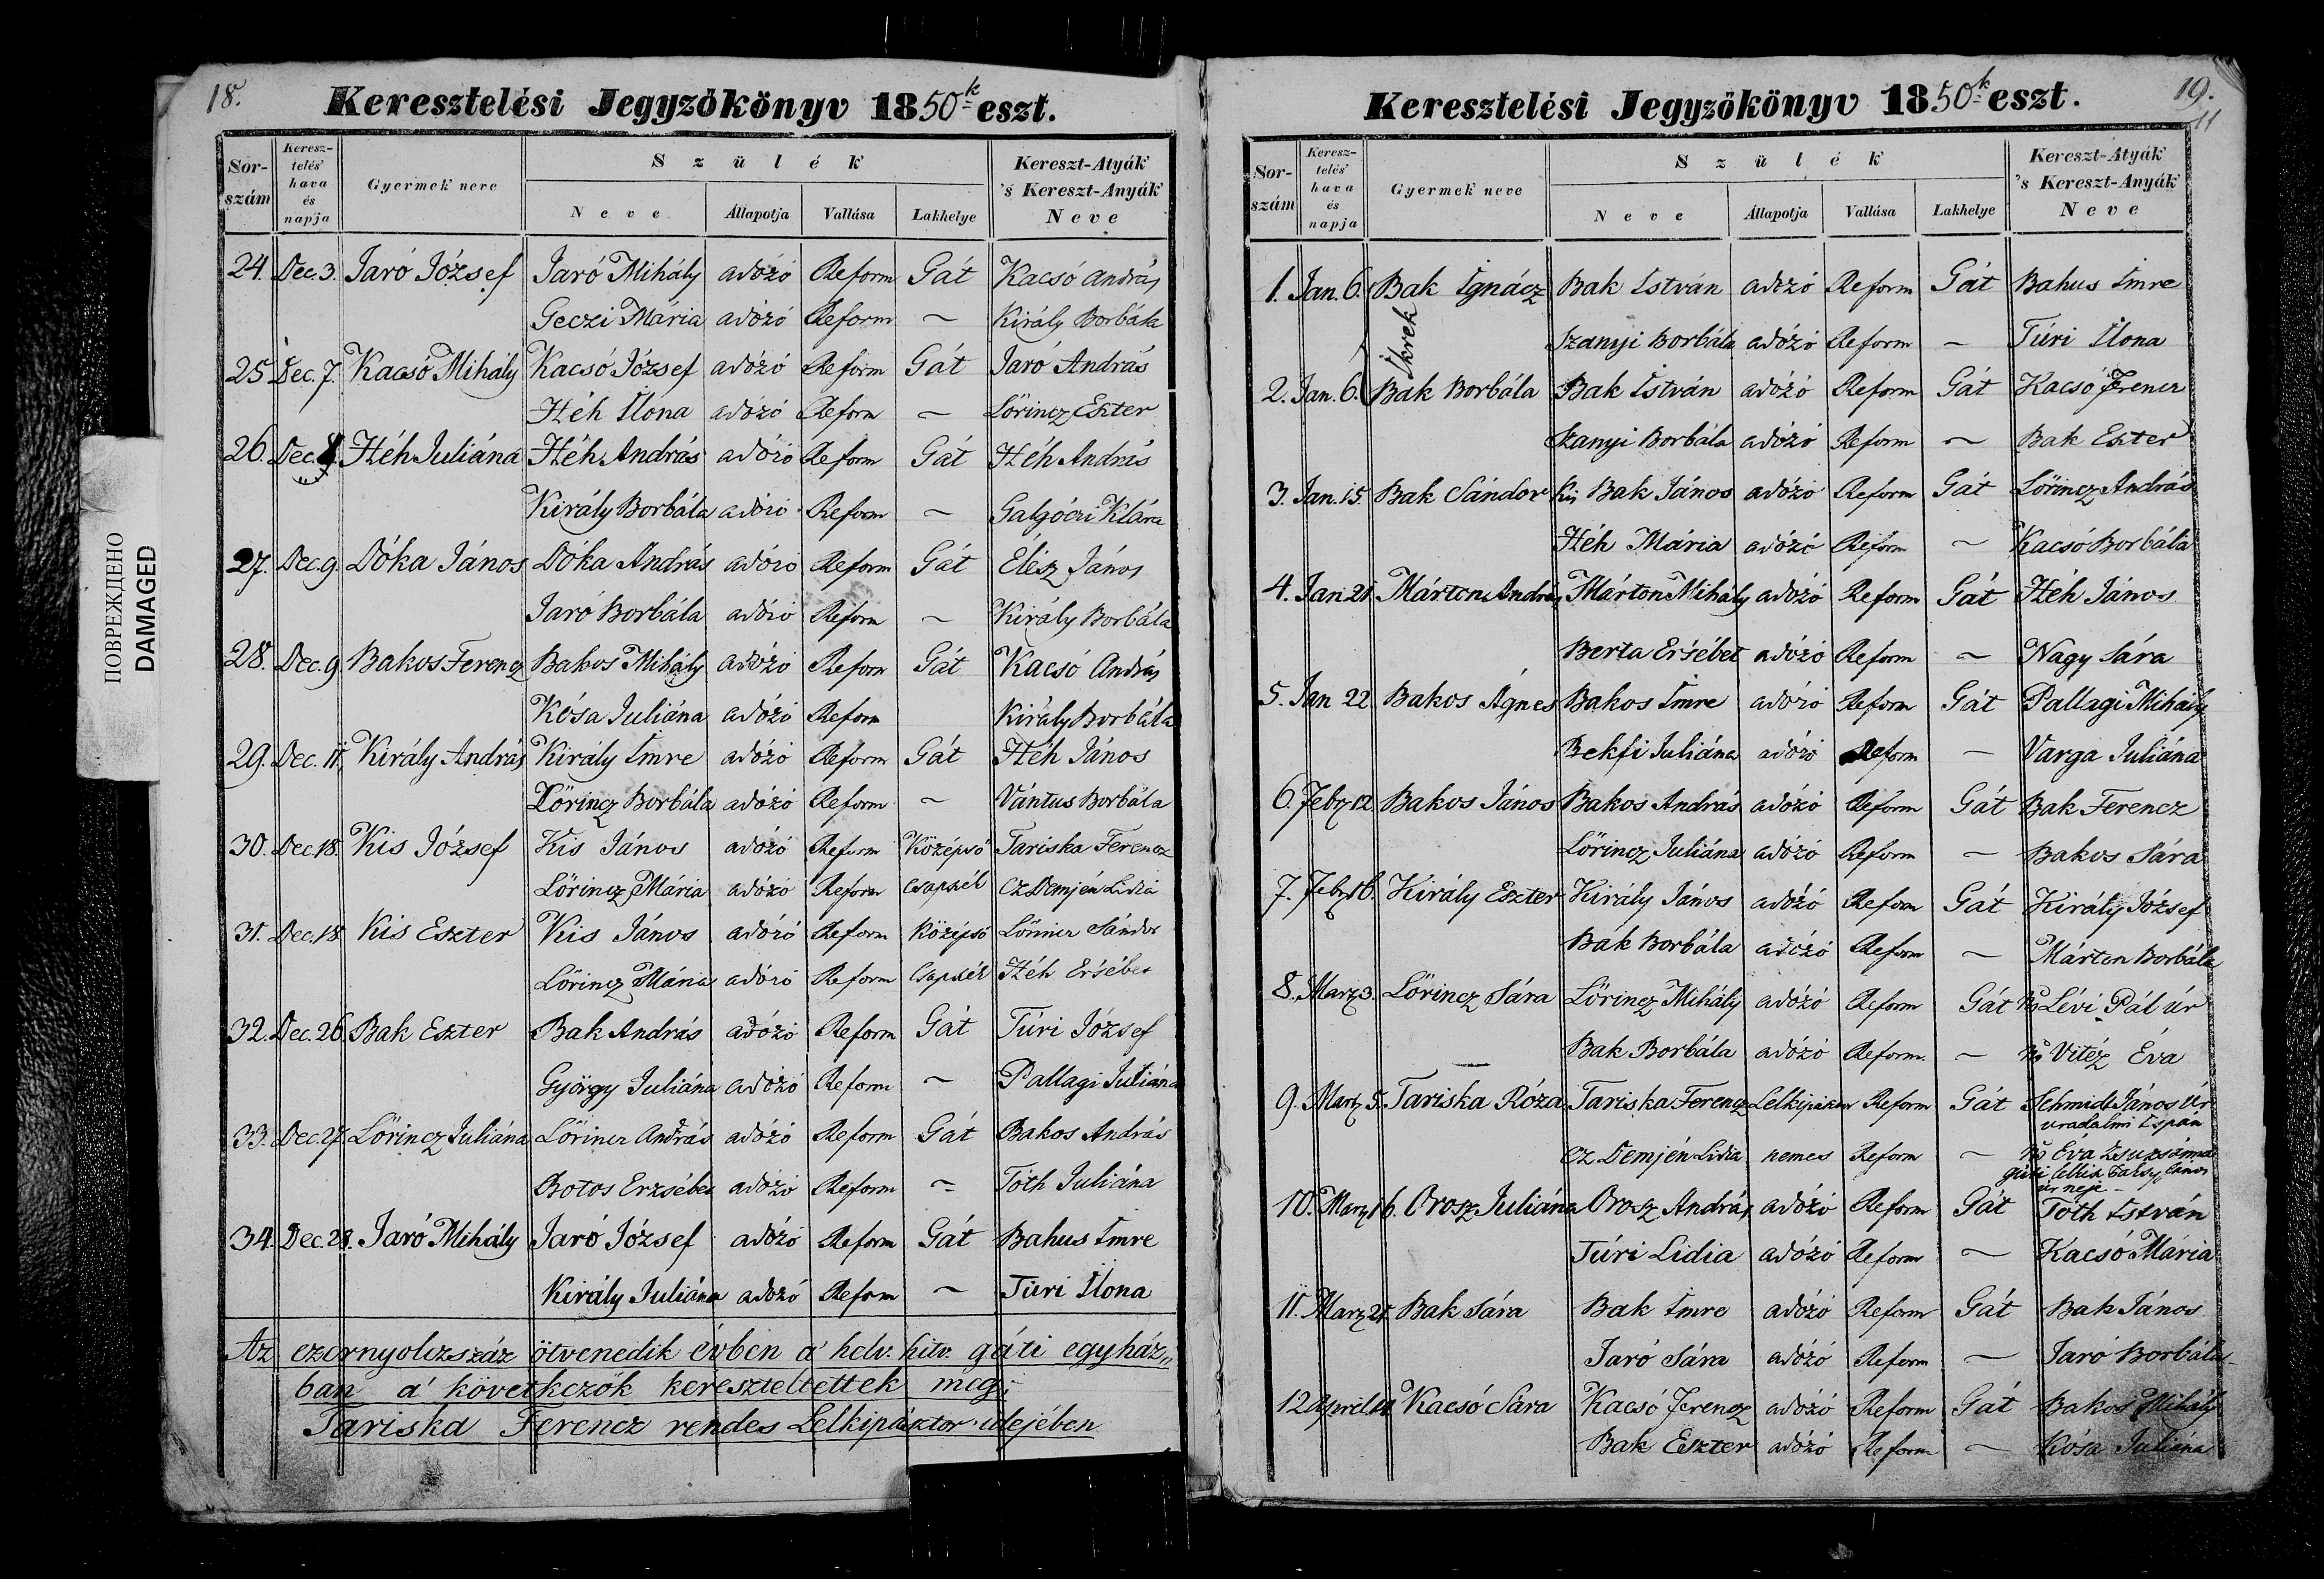 ПОВРЕЖДЕНО
DAMAGED
18.
Keresztelési Jegyzőkönyv 1850k eszt.
Sor-szám Keresz-telés' hava és napja Gyermek neve Szülék Kereszt-Atyák 's Kereszt-Anyák Neve
Neve Állapotja Vallása Lakhelye
24. Dec. 3. Jaró József Jaró Mihály adózó Reform Gát Kacsó András
Geczi Mária adózó Reform ~ Király Borbála
25 Dec. 7. Kacsó Mihály Kacsó József adózó Reform Gát Jaró András
Héh Ilona adózó Reform ~ Lőrincz Eszter
26. Dec. 8. Héh Juliána Héh András adózó Reform Gát Héh András
Király Borbála adózó Reform ~ Galgóczi Klára
27. Dec. 9. Dóka János Dóka András adózó Reform Gát Élész János
Jaró Borbála adózó Reform ~ Király Borbála
28. Dec. 9. Bakos Ferencz Bakos Mihály adózó Reform Gát Kacsó András
Kósa Juliána adózó Reform Király Borbála
29. Dec. 11. Király András Király Imre adózó Reform Gát Héh János
Lőrincz Borbála adózó Reform ~ Vántus Borbála
30. Dec. 18. Kis József Kis János adózó Reform Középső Tariska Ferencz
Lőrincz Mária adózó Reform Cz Demjén Lidia
31. Dec. 18 Kis Eszter Kis János adózó Reform Középső Lőrincz Sándor
Lőrincz Mária adózó Reform Héh Ersébet
32. Dec. 26. Bak Eszter Bak András adózó Reform Gát Túri József
György Juliána adózó Reform ~ Pallagi Juliána
33. Dec. 27. Lőrincz Juliána Lőrincz András adózó Reform Gát Bakos András
Botos Erzsébet adózó Reform ~ Tóth Juliána
34. Dec. 28. Jaró Mihály Jaró József adózó Reform Gát Bahus Imre
Király Juliána adózó Reform ~ Túri Ilona
Az ezernyolczszáz ötvenedik évben a' helv. hitv. gáti egyház„
ban a' következők kereszteltettek meg;
Tariska Ferencz rendes Lelkipásztor idejében
19.
11
Keresztelési Jegyzőkönyv 1850k eszt.
Sor-szám Keresz-telés' hava és napja Gyermek neve Szülék Kereszt-Atyák 's Kereszt-Anyák Neve
Neve Állapotja Vallása Lakhelye
1. Jan. 6. Bak Ignácz Bak István adózó Reform Gát Bahus Imre
Ikrek
Szanyi Borbála adózó Reform ~ Túri Ilona
2. Jan. 6. Bak Borbála Bak István adózó Reform Gát Kacsó Ferencz
Szanyi Borbála adózó Reform ~ Bak Eszter
3. Jan. 15. Bak Sándor Kis Bak János adózó Reform Gát Lőrincz András
Héh Mária adózó Reform ~ Kacsó Borbála
4. Jan 21 Márton András Márton Mihály adózó Reform Gát Héh János
Berta Ersébet adózó Reform ~ Nagy Sára
5. Jan 22 Bakos Ágnes Bakos Imre adózó Reform Gát Pallagi Mihály
Bekfi Juliána adózó Reform ~ Varga Juliána
6. Febr 12 Bakos János Bakos András adózó Reform Gát Bak Ferencz
Lőrincz Juliána adózó Reform ~ Bakos Sára
7. Febr 16. Király Eszter Király János adózó Reform Gát Király József
Bak Borbála adózó Reform ~ Márton Borbála
8. Marz 3. Lőrincz Sára Lőrincz Mihály adózó Reform Gát Lévi Pál úr
Bak Borbála adózó Reform. ~ Vitéz Éva
9. Marz 5. Tariska Róza Tariska Ferencz Lelkipásztor Reform Gát Schmidt János Úr
uradalmi Ispán
Cz Demjén Lidia nemes Reform ~ Éva Zsuzsánna
úr neje
10. Marz 16. Orosz Juliána Orosz András adózó Reform Gát Tóth István
Túri Lidia adózó Reform ~ Kacsó Mária
11. Marz 21 Bak Sára Bak Imre adózó Reform Gát Bak János
Jaró Sára adózó Reform ~ Jaró Borbála
12 April 14 Kacsó Sára Kacsó Ferencz adózó Reform Gát Bakos Mihály
Bak Eszter adózó Reform ~ Kósa Juliána